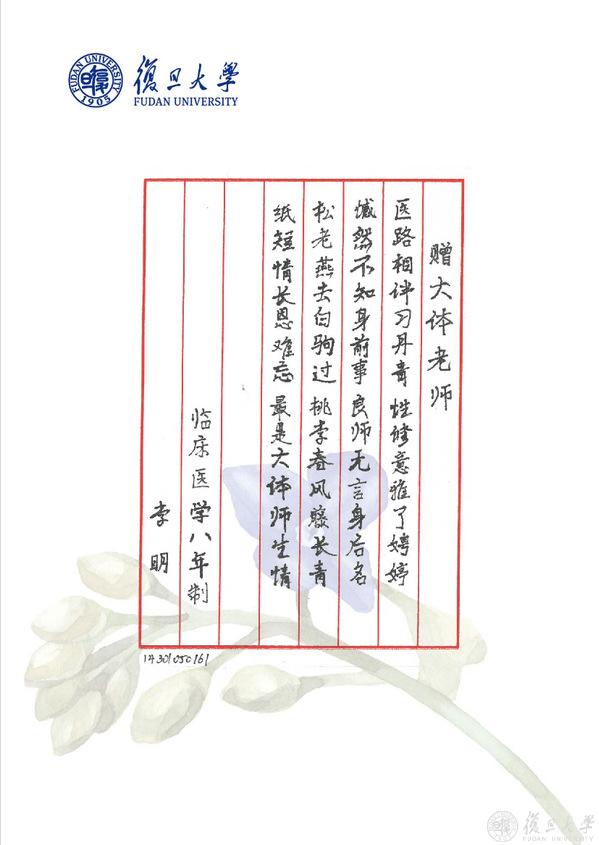 復旦大學
FUDAN UNIVERSITY
FUDAN UNIVERSITY
1905
赠大体老师
医路相伴习丹青 性修意雅了娉婷
憾然不知身前事 良师无言身后名
松老燕去白驹过 桃李春风藤长青
纸短情长恩难忘 最是大体师生情
临床医学八年制
李明
14301050161
復旦大學
FUDAN UNIVERSITY